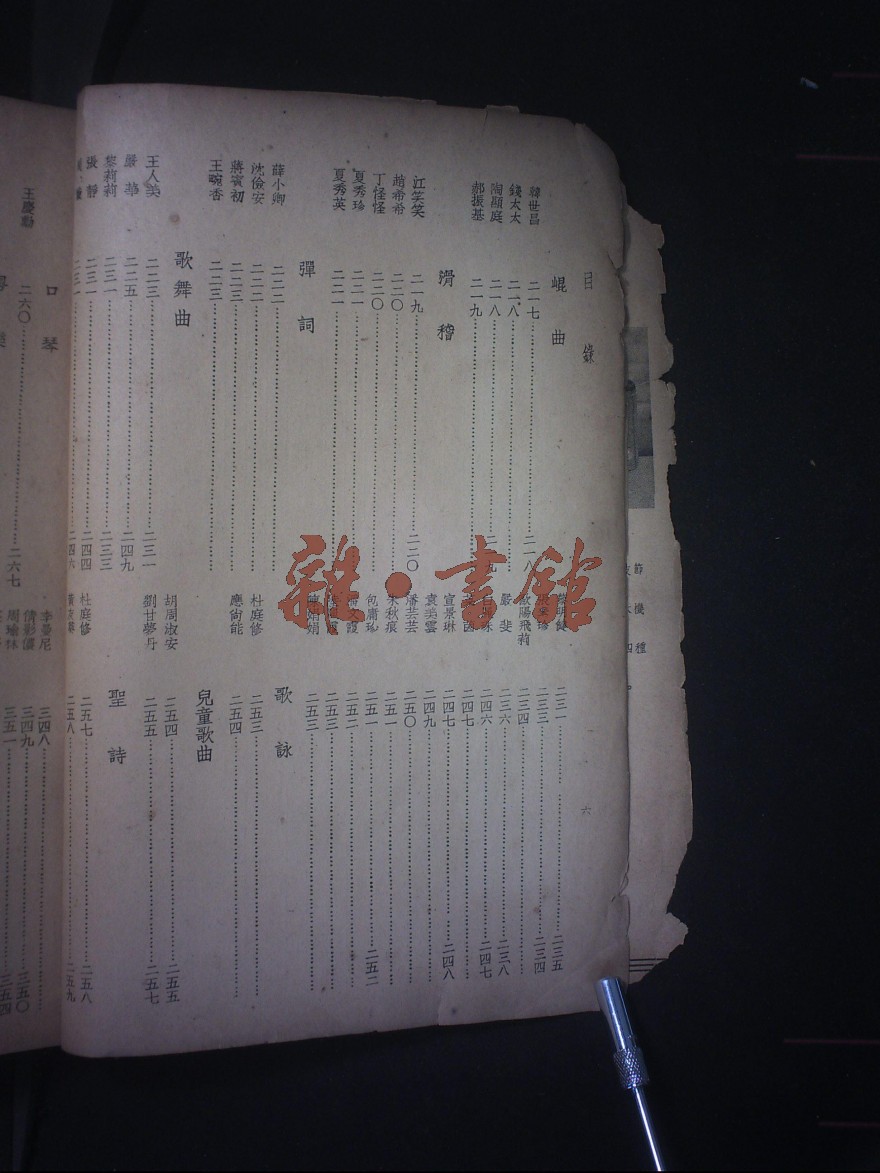 目錄
崐曲
韓世昌 二一七 二一八
錢太太 二一八
陶顯庭 二一八 二一九
郝振基 二一九
滑稽
江笑笑 二一九 二二〇
趙希希 二二〇
丁怪怪 二二〇
夏秀珍 二二一
夏秀英 二二一
彈詞
薛小卿 二二二
沈儉安 二二二
蔣賓初 二二三
王畹香 二二三
歌舞曲
王人美 二二三 二三一
嚴華 二二五 二四九
黎莉莉 二三一 二三三
張靜 二三一 二四四
二三一 二四六
二三一 二三五
二三三 二三四
歐陽飛莉 二三四
嚴斐 二三六 二三八
二四六 二四七
二四七
宣景琳 二四七 二四八
袁美雲 二四九
潘芸芸 二五〇
朱秋痕 二五一
包庸珍 二五一 二五二
二五二
二五三
二五三
歌詠
杜庭修 二五三
應尚能 二五四
兒童歌曲
胡周淑安 二五四 二五五
劉甘夢丹 二五五 二五七
聖詩
杜庭修 二五七 二五八
二五八 二五九
六
口琴
王慶勳 二六〇 二六七
李曼尼 三四八
倩影儂 三四九 三五〇
周瑜林 三五一 三五四
節機種
雜·書館